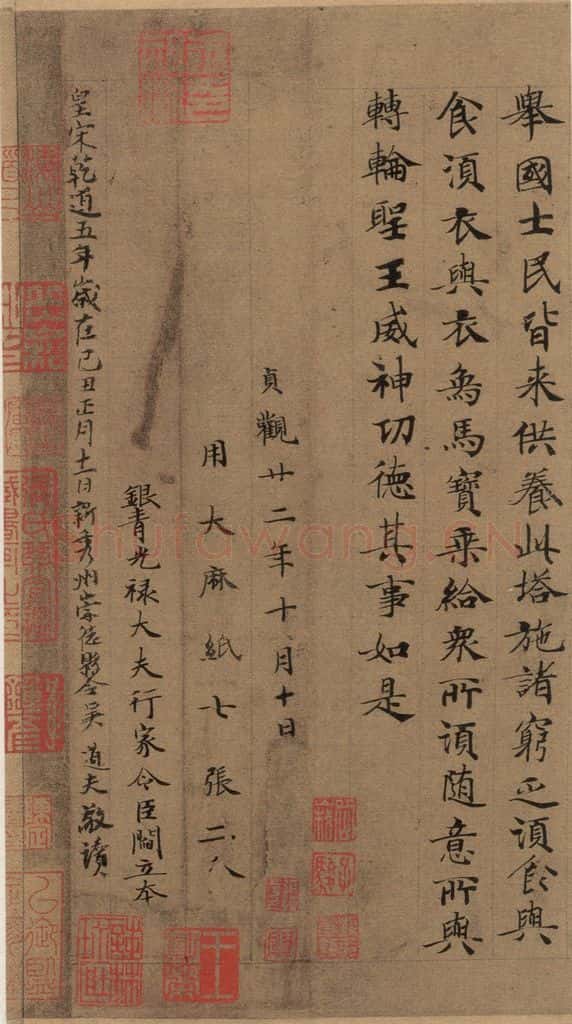 舉國士民皆来供養此塔施諸窮乏須食與
食須衣與衣象馬寶乘給衆所須随意所與
轉輪聖王威神功德其事如是
貞觀廿二年十月十日
用大麻紙七張二分
銀青光禄大夫行家令臣閻立本
皇宋乾道五年歲在己丑正月十一日新秀州崇德縣令吳道夫敬讀
shufawang.CN